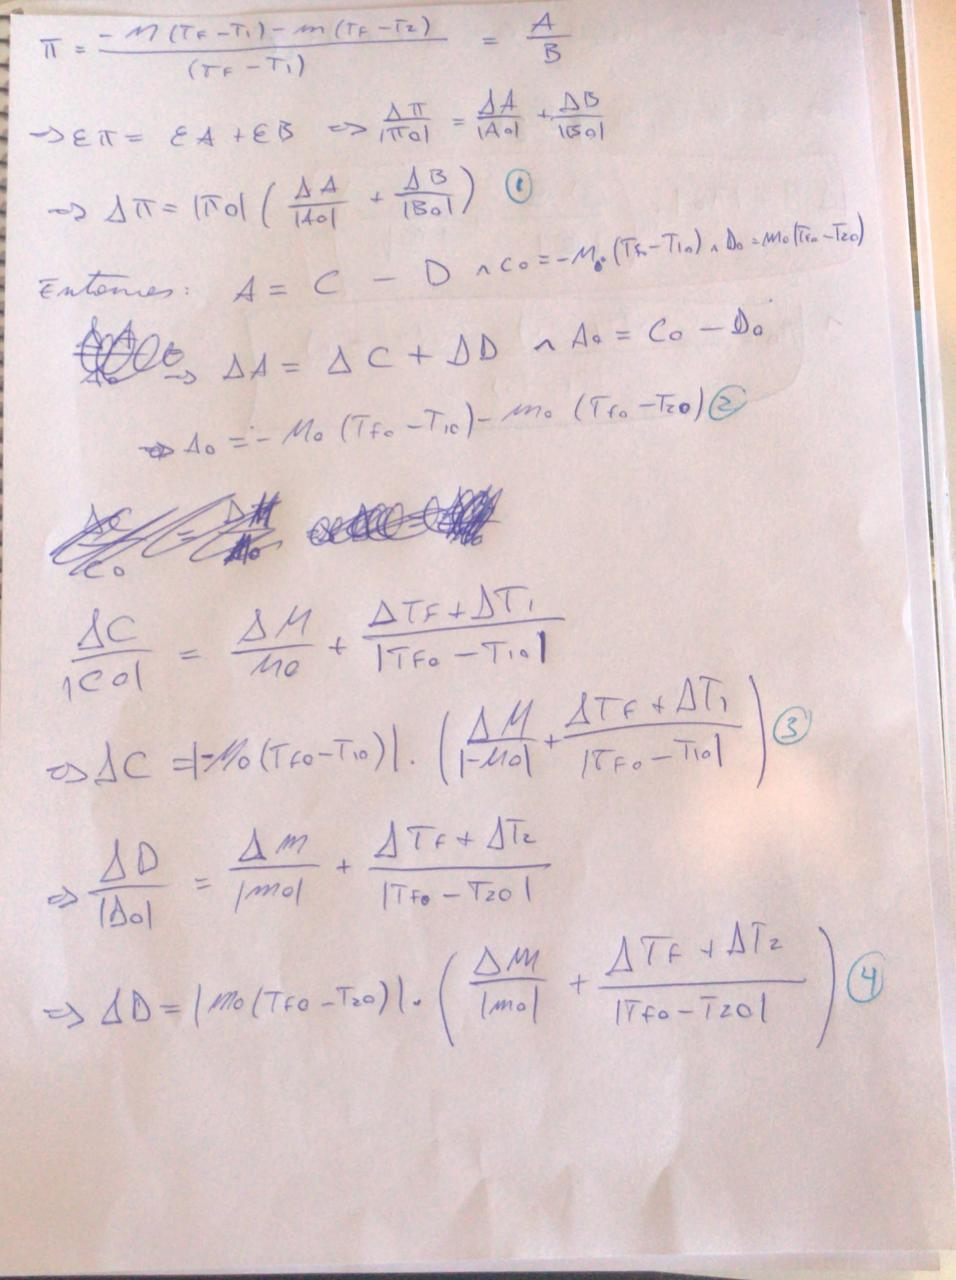 π = (-M (TF - T1) - m (TF - T2)) / (TF - T1) = A / B
→ επ = εA + εB ⇒ Δπ/|π0| = ΔA/|A0| + ΔB/|B0|
⇒ Δπ = |π0| ( ΔA/|A0| + ΔB/|B0| ) ①
Entonces: A = C - D ∧ C0 = -M0 (Tf0 - T10) ∧ D0 = m0 (Tf0 - T20)
→ ΔA = ΔC + ΔD ∧ A0 = C0 - D0
⇒ A0 = - M0 (Tf0 - T10) - m0 (Tf0 - T20) ②
ΔC/|C0| = ΔM/M0 + (ΔTF + ΔT1)/|TF0 - T10|
⇒ ΔC = |-M0 (TF0 - T10)| . ( ΔM/|-M0| + (ΔTF + ΔT1)/|TF0 - T10| ) ③
⇒ ΔD/|D0| = Δm/|m0| + (ΔTF + ΔT2)/|TF0 - T20|
⇒ ΔD = |m0 (TF0 - T20)| . ( Δm/|m0| + (ΔTF + ΔT2)/|TF0 - T20| ) ④